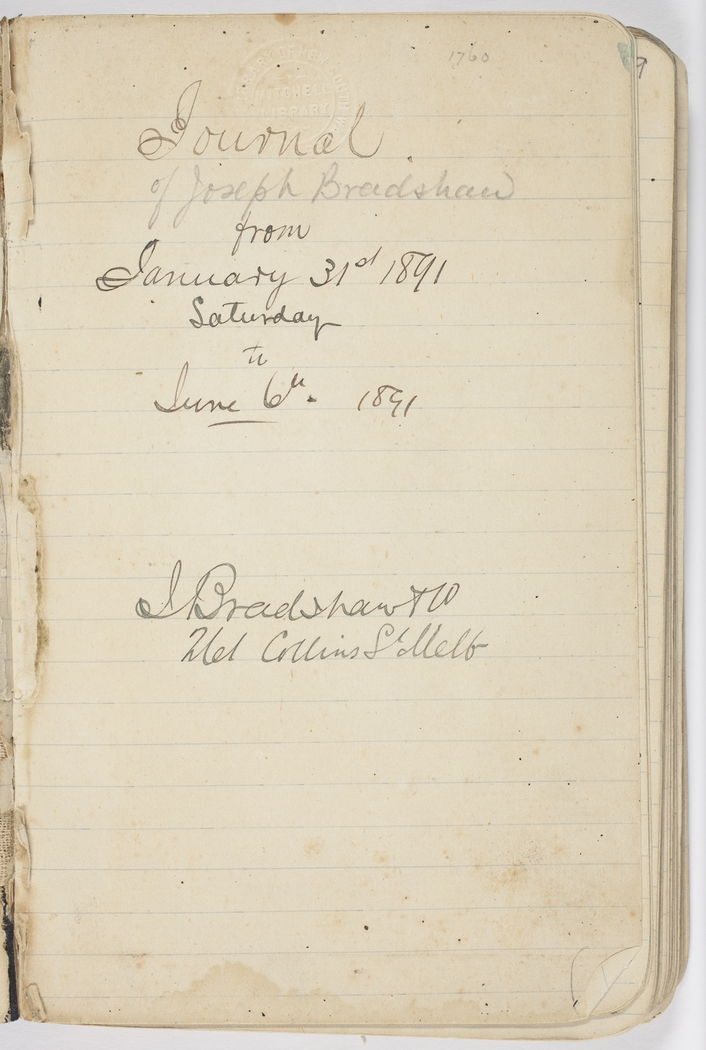 1760
LIBRARY OF NEW SOUTH
MITCHELL
LIBRARY
Journal
of Joseph Bradshaw
from
January 31st 1891
Saturday
to
June 6th. 1891
J. Bradshaw & Co
Collins St Melb